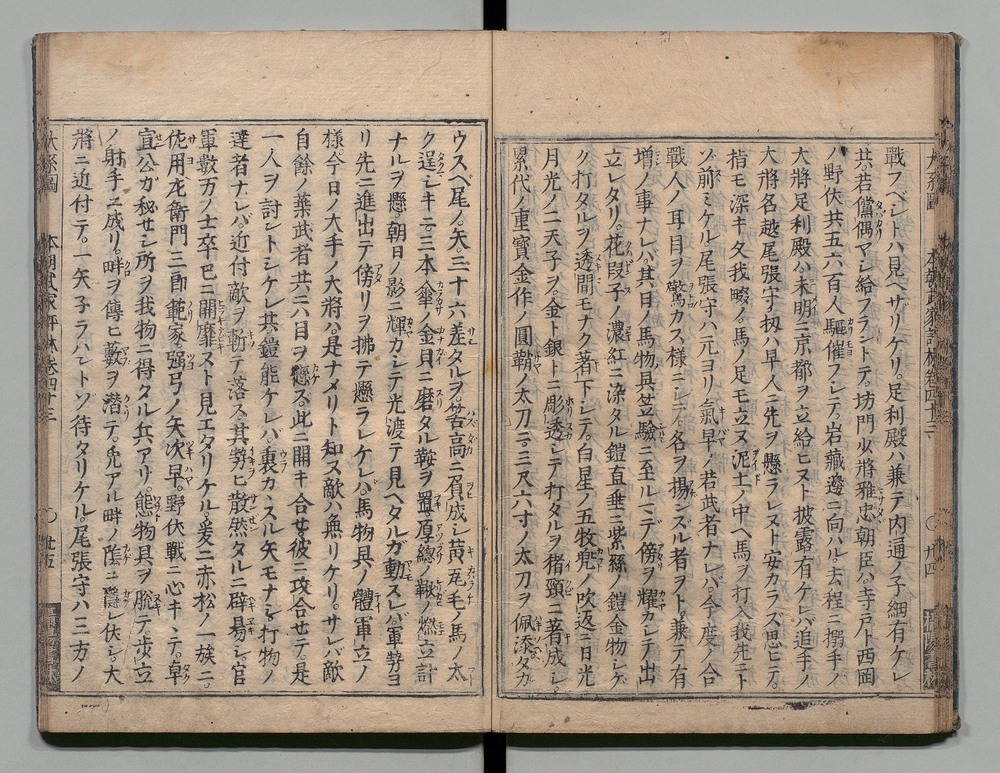 戰フベシトハ見ヘザリケリ。足利殿ハ兼テ内通ノ子細有ケレ
共。若儻偶マシ給フラントテ。坊門少將雅忠朝臣ハ。寺戸ト西岡
ノ野伏共五六百人驅催フシテ。岩藏邊ニ向ハル。去程ニ搦手ノ
大將足利殿ハ。未明ニ京都ヲ立給ヒヌト披露有ケレバ。追手ノ
大將名越尾張守。扨ハ早人ニ先ヲ懸ラレヌト安カラズ思ヒテ。
指モ深キ久我畷ノ。馬ノ足モ立ヌ泥土ノ中ヘ馬ヲ打入。我先ニト
ゾ前ミケル。尾張守ハ元ヨリ氣早ノ若武者ナレバ。今度ノ合
戰人ノ耳目ヲ驚カス樣ニシテ。名ヲ揚ンズル者ヲト。兼テ有
増ノ事ナレバ。其日ノ馬物具笠驗ニ至ルマデ。傍ヲ耀カシテ出
立レタリ。花段子ノ濃紅ニ染タル鎧直垂ニ。紫絲ノ鎧金物シゲ
ク打タルヲ。透間モナク著下シテ。白星ノ五牧兜ノ吹返ニ。日光
月光ノ二天子ヲ。金ト銀トニ彫透シテ打タルヲ猪頸ニ著成シ。
累代ノ重寶金作ノ圓鞘ノ太刀ヲ。三尺六寸ノ太刀ヲ佩添。タカ
ウスベ尾ノ矢三十六差タルヲ。筈高ニ負成シ。黄瓦毛ノ馬ノ太
ク逞シキニ。三本傘ノ金貝ニ磨タル鞍ヲ置。厚總ノ鞦ノ燃立計
ナルヲ懸。朝日ノ影ニ輝カシテ光渡テ見ヘタルガ。動スレバ軍勢ヨ
リ先ニ進出テ。傍リヲ拂テ懸ラレケレバ。馬物具ノ體軍立ノ
樣。今日ノ大手ノ大將ハ。是ナメリト知ヌ敵ハ無リケリ。サレバ敵
自餘ノ葉武者共ニハ目ヲ懸ズ。此ニ開キ合セ彼ニ攻合セテ。是
一人ヲ討ントシケレ共。鎧能ケレバ裏カヽスル矢モナシ。打物ノ
達者ナレバ。近付敵ヲ斬テ落ス。其勢ヒ散然タルニ辟易シ。官
軍數万ノ士卒已ニ開靡ヌト見エタリケル。爰ニ赤松ノ一族ニ。
佐用左衛門三郎範家。强弓ノ矢次早。野伏戰ニ心キヽテ。卓
宣公ガ秘セシ所ヲ我物ニ得タル兵アリ。態物具ヲ脱テ歩立
ノ射手ニ成リ。畔ヲ傳ヒ藪ヲ潛テ。兎アル畔ノ陰ニ隱レ伏シ。大
將ニ近付テ。一矢子ラハントゾ待タリケル。尾張守ハ三方ノ